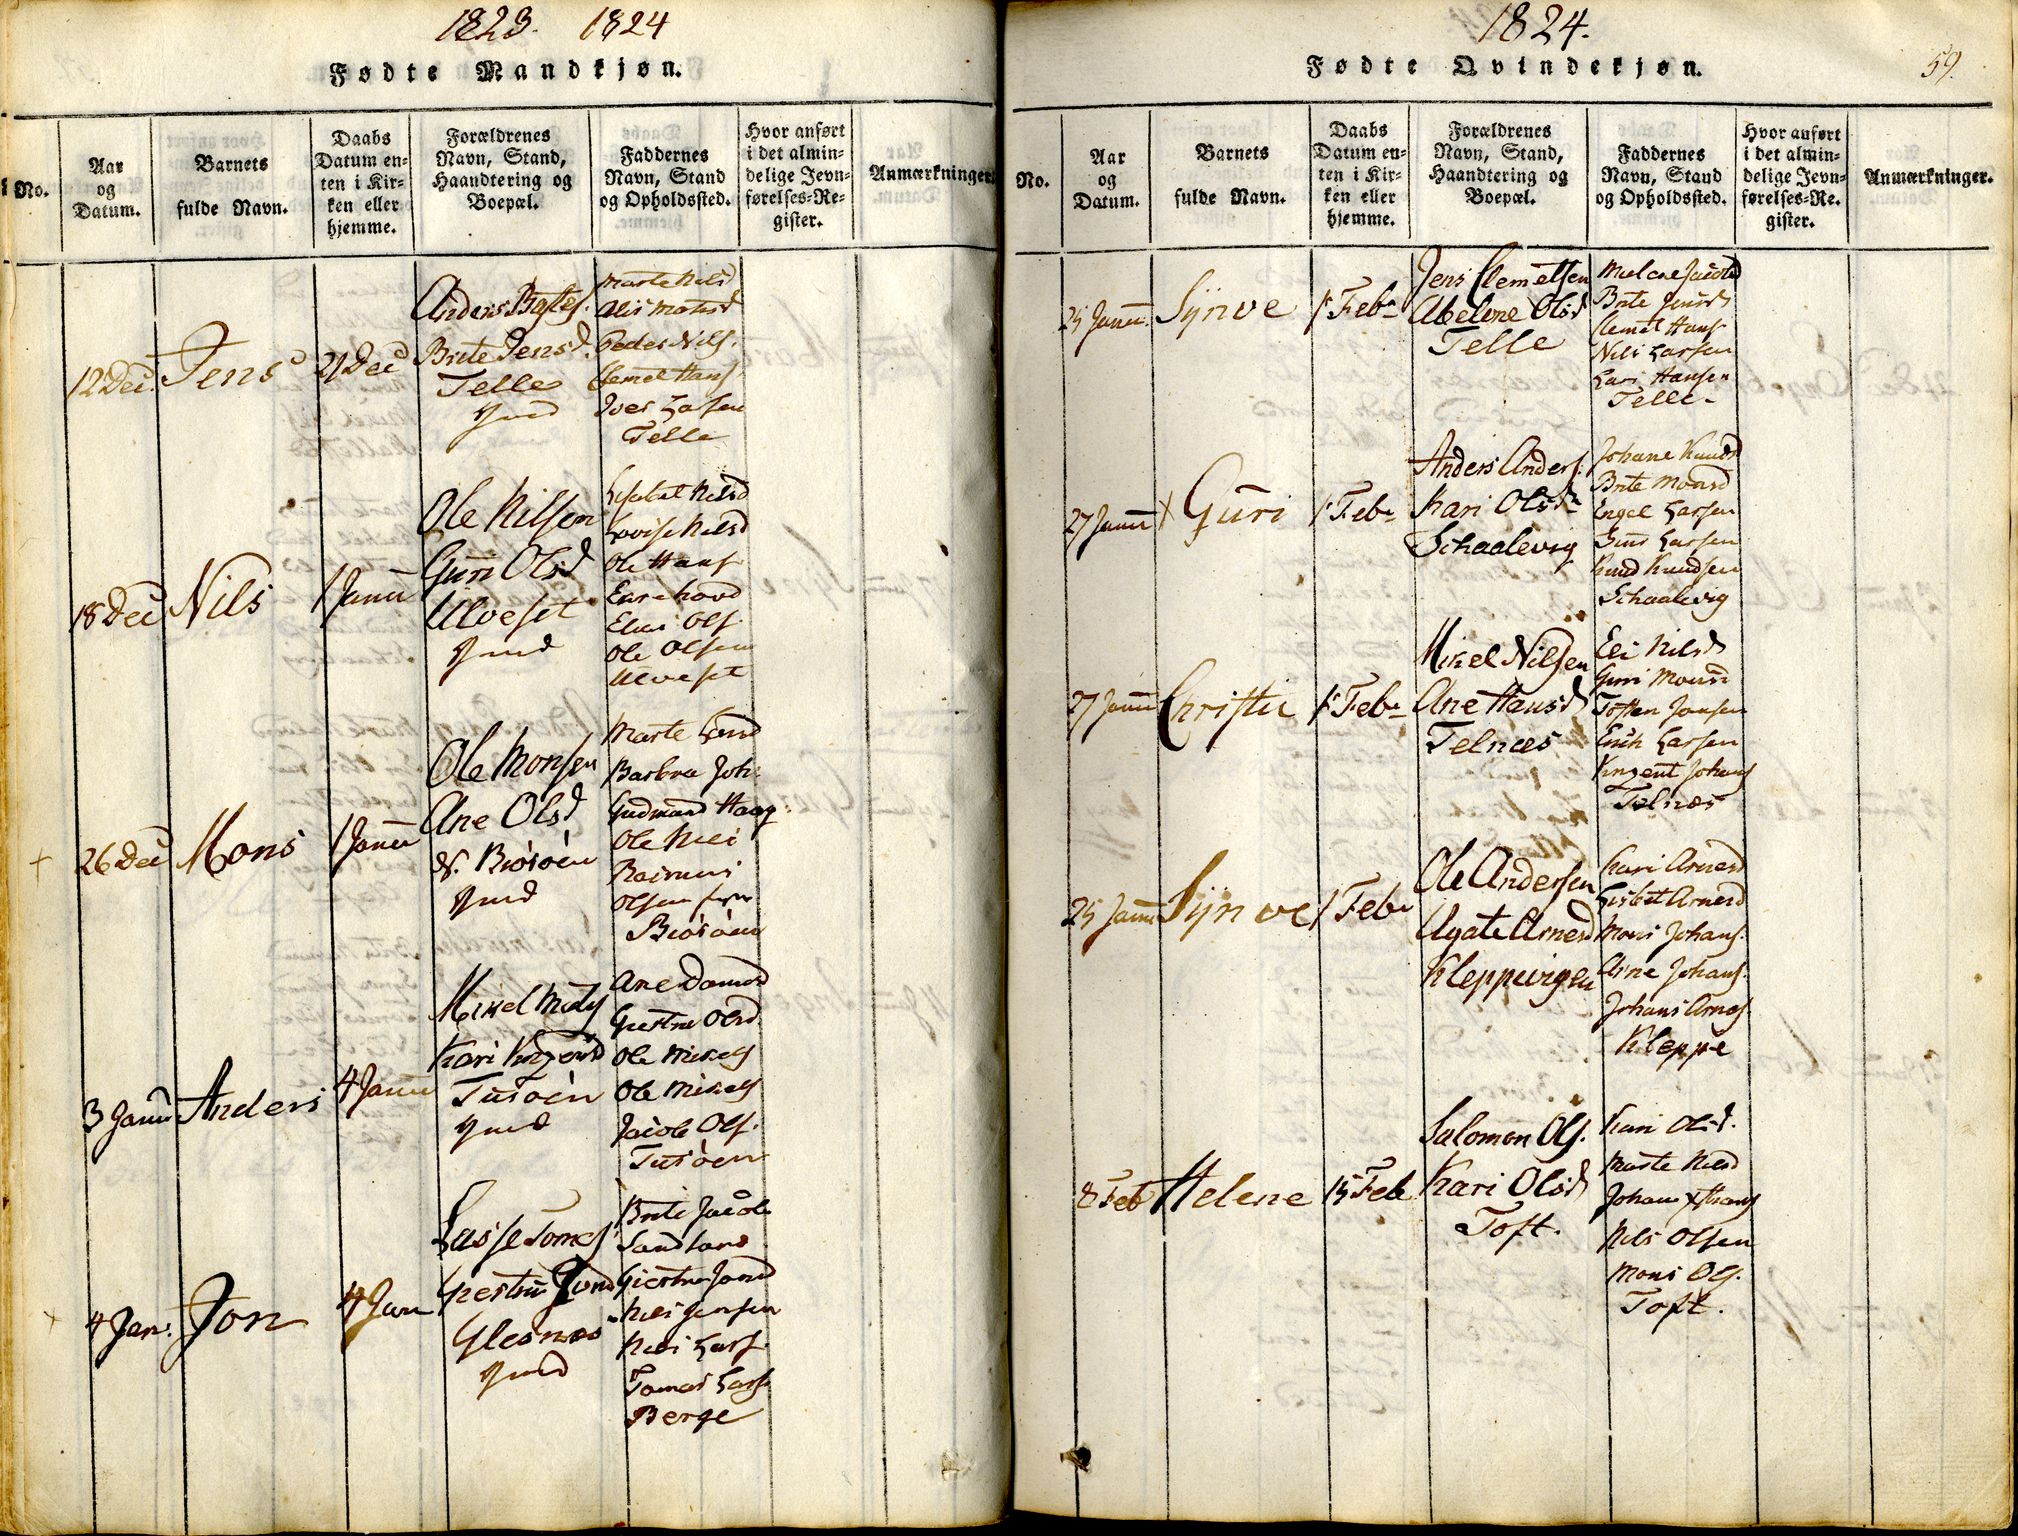 1823. 1824
Fødte Mandkjøn.
No.
Aar
og
Datum.
Barnets
fulde Navn.
Daabs
Datum en-
ten i Kir-
ken eller
hjemme.
Forældrenes
Navn, Stand,
Haandtering og
Boepæl.
Faddernes
Navn, Stand
og Opholdssted.
Hvor anført
i det almin-
delige Jevn-
førelses-Re-
gister.
Anmærkninger.
12 Dec. Jens 21 Dec
Anders
Brite Jensd.
Telle
Marte Nilsd
Peder Nils.
Clemet Hans
Iver Larsen
Telle
18 Dec Nils 1 Janu
Ole Nilsen
Guri Olsd
Ulveset
Nilsd
Lovise Nilsd
Ole Hans
Ole Olsen
Ulveset
26 Dec Mons 1 Janu
Ole Monsen
Ane Olsd
Biöröen
Marte
Barbra Joh.
Gudmund Haag
Ole Nils
Rasmus
Olsen
Biöröen
3 Janu Anders 4 Janu
Mikel
Kari
Tusöen
Ane
Giertru Olsd
Ole Mikels
Ole Mikels
Jacob Ols.
Tusöen
4 Jan. Jon 4 Jan
Lasse Tomes
Giertru Jonsd
Glesnæs
Brite Jacob
Sandland
Giertru Jansd
Nils Jensen
Nils Lars.
Tomas Lars.
Berge
1824.
59.
Fødte Qvindekjøn.
No.
Aar
og
Datum.
Barnets
fulde Navn.
Daabs
Datum en-
ten i Kir-
ken eller
hjemme.
Forældrenes
Navn, Stand,
Haandtering og
Boepæl.
Faddernes
Navn, Stand
og Opholdssted.
Hvor anført
i det almin-
delige Jevn-
førelses-Re-
gister.
Anmærkninger.
25 Janu. Synve 1 Feb
Jens Clemetsen
Abelone Olsd
Telle
Brite Jensd
Clemet Hans
Nils Larsen
Lars Hansen
Telle
27 Janu Guri 1 Feb
Anders Anders.
Kari Olsd
Schaalevig
Johane Knudsd
Brite Monsd
Engel Larsen
Jens Larsen
Knud Knudsen
Schaalevig
27 Janu Christie 1 Feb
Mikel Nilsen
Ane Hansd
Telnæs
Eli Nilsd
Guri Monsd
Tosten Jansen
Erich Larsen
Vinzent Johans
Telnæs
25 Janu Synve 1 Feb
Ole Andersen
Agate Arnesd
Kleppevigen
Kari Arnesd
Lisbet Arnesd
Mons Johans.
Arne Johans.
Johans Arnes.
Kleppe
8 Feb Helene 15 Feb
Salomon Ols.
Kari Olsd
Toft.
Kari Olsd.
Marte Nilsd
Johans Hans
Nils Olsen
Mons Ols.
Toft.